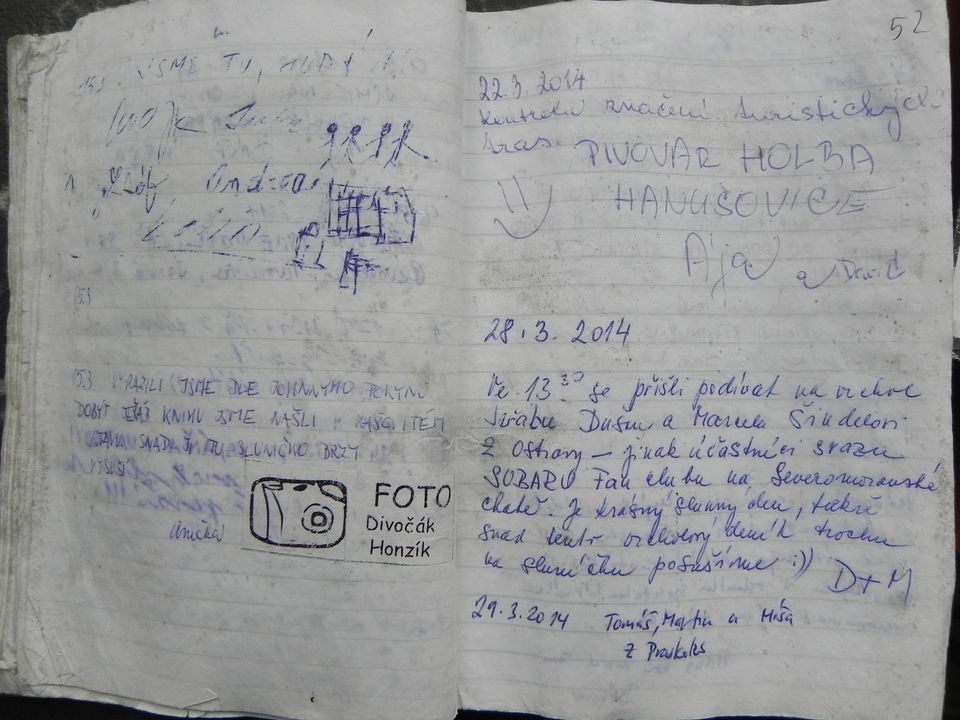 15.3. JSME TU, HURÁ !!
15.3
15.3. VYRAZILI JSME DLE JOHNNYHO POKYNU
DOBÝT JEŘÁB KNIHU JSME NAŠLI V
SNAD JI TU SLUNÍČKO BRZY
VYSUŠÍ
Anička
FOTO
Divočák
Honzík
52
22.3. 2014
kontrola značení turistických
tras.
PIVOVAR HOLBA
HANUŠOVICE
Ája a David
28.3. 2014
Ve 13 30 se přišli podívat na vrchol
Jeřábu Dušan a Marcela Šindeloři
z Ostravy – jinak účastníci srazu
SUBARU Fan clubu na Severomoravské
chatě. Je krásný slunný den, takže
snad tento vrcholový deník trochu
na sluníčku posušíme :))
D+M
29.3.2014 Tomáš, Martin a Míša
z Praskoles